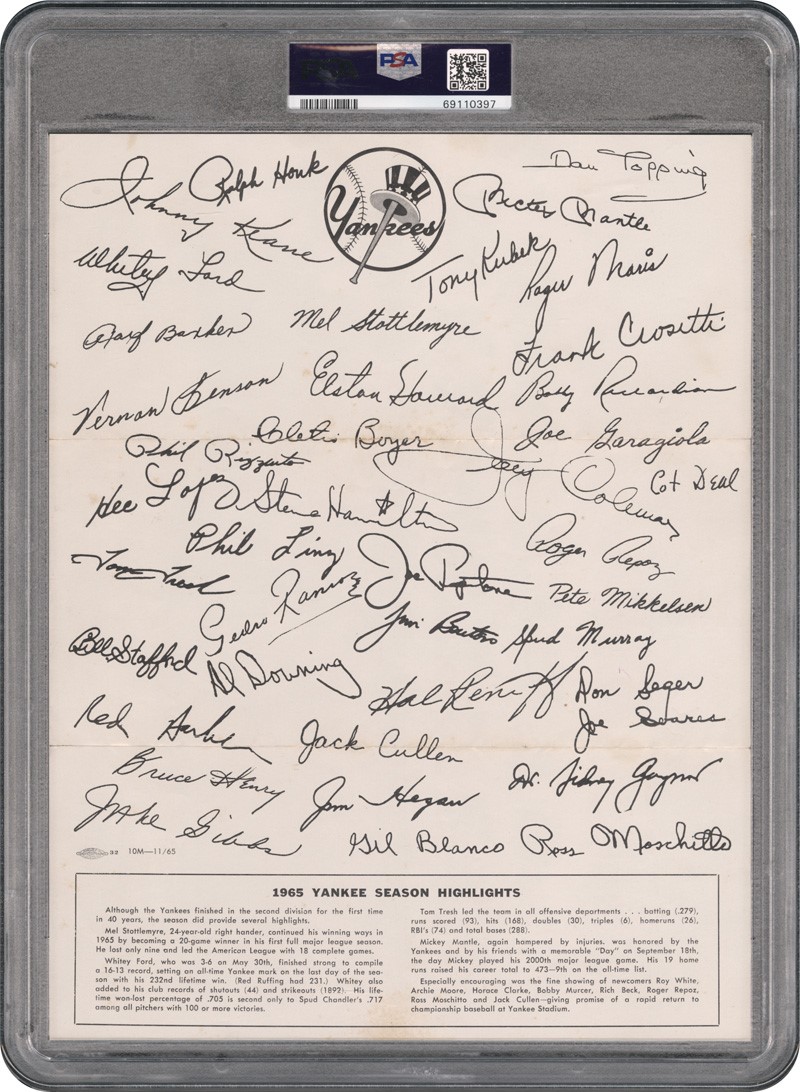 PSA
69110397
Dan Topping
Ralph Houk
Johnny Keane
Yankees
Mickey Mantle
Whitey Ford
Tony Kubek
Roger Maris
Mel Stottlemyre
Frank Crosetti
Vernon Benson
Elston Howard
Bobby Richardson
Phil Rizzuto
Cletis Boyer
Joe Garagiola
Jerry Coleman
Cot Deal
Hec Lopez
Steve Hamilton
Phil Linz
Roger Repoz
Tom Tresh
Pedro Ramos
Joe Pepitone
Pete Mikkelsen
Jim Bouton
Spud Murray
Bill Stafford
Al Downing
Hal Reniff
Don Seger
Joe Soares
Red Barber
Jack Cullen
Bruce Henry
Jim Hegan
Dr. Sidney Gaynor
Jake Gibbs
Gil Blanco
Ross Moschitto
32 10M—11/65
1965 YANKEE SEASON HIGHLIGHTS
Although the Yankees finished in the second division for the first time
in 40 years, the season did provide several highlights.
Mel Stottlemyre, 24-year-old right hander, continued his winning ways in
1965 by becoming a 20-game winner in his first full major league season.
He lost only nine and led the American League with 18 complete games.
Whitey Ford, who was 3-6 on May 30th, finished strong to compile
a 16-13 record, setting an all-time Yankee mark on the last day of the sea-
son with his 232nd lifetime win. (Red Ruffing had 231.) Whitey also
added to his club records of shutouts (44) and strikeouts (1892). His life-
time won-lost percentage of .705 is second only to Spud Chandler's .717
among all pitchers with 100 or more victories.
Tom Tresh led the team in all offensive departments . . . batting (.279),
runs scored (93), hits (168), doubles (30), triples (6), homeruns (26),
RBI's (74) and total bases (288).
Mickey Mantle, again hampered by injuries, was honored by the
Yankees and by his friends with a memorable "Day" on September 18th,
the day Mickey played his 2000th major league game. His 19 home
runs raised his career total to 473—9th on the all-time list.
Especially encouraging was the fine showing of newcomers Roy White,
Archie Moore, Horace Clarke, Bobby Murcer, Rich Beck, Roger Repoz,
Ross Moschitto and Jack Cullen—giving promise of a rapid return to
championship baseball at Yankee Stadium.